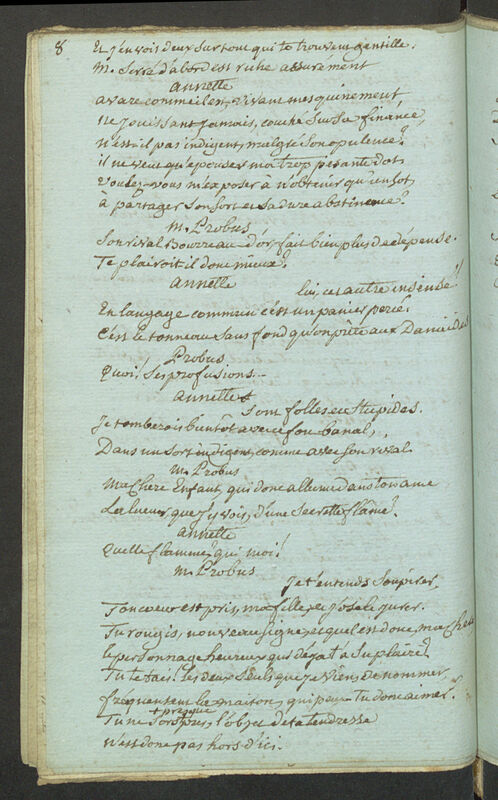 8 Et j'en vois deux surtout qui te trouvent gentille.
M. Serre d'abord est riche assurément
annette
avare comme il est, vivant mesquinement
ne jouissant jamais, couché sur sa finance,
n'est-il pas indigent, malgré son opulence?
il ne veut qu'épouser ma trop pesante dot.
voulez-vous m'exposer à n'obtenir qu'un sot,
à partager son sort et sa dure abstinence?
M. Probus
Son rival Bourreau-d'or fait bien plus de dépense.
Te plairoit il donc mieux?
annette
lui, cet autre insensé!
En langage commun c'est un panier percé.
C'est le tonneau sans fond qu'on prête aux Danaïdes
Probus
quoi! Ses profusions...
annette
Sont folles et stupides.
Je tomberois bientôt avec ce fou banal,
Dans un sort indigent, comme avec son rival
M. Probus
Ma chere Enfant, qui donc allume dans ton ame
La lueur que j'y vois, d'une secrette flâme?
annette
quelle flamme? qui moi!
M. Probus
Je t'entends soupirer.
Ton coeur est pris, ma fille, et j'ose le jurer.
Tu rougis, nouveau signe, et quel est donc, ma chere
le personnage heureux qui déja t'a su plaire?
Tu te tais! les deux seuls que je viens de nommer
fréquentent la maison, qui peux-tu donc aimer?
+ presque
Tu ne sors pas, l'objet de ta tendresse
n'est donc pas hors d'ici.